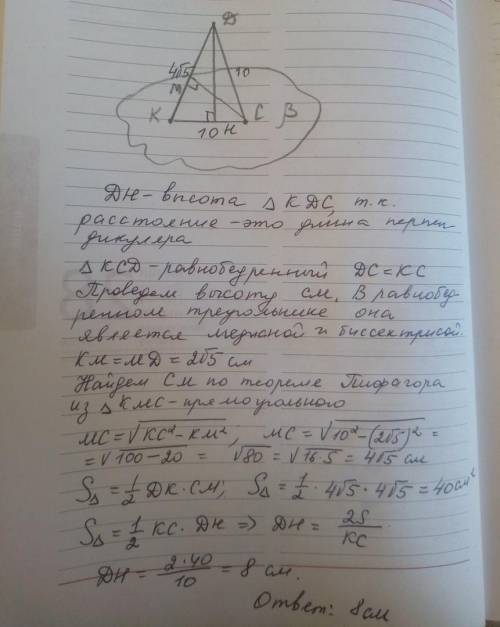 D
4√5
10
M
K
C
β
10
H
DH – высота △ KDC, т.к.
расстояние – это длина перпен
дикуляра
△ KCD – равнобедренный DC = KC
Проведем высоту CM. В равнобед-
ренном треугольнике она
является медианой и биссектрисой.
KM = MD = 2√5 см
Найдем CM по теореме Пифагора
из △ KMC – прямоугольного
MC = √KC² – KM² ; MC = √10² – (2√5)² =
= √100 – 20 = √80 = √16·5 = 4√5 см
S△ = 1/2 DK · CM; S△ = 1/2 · 4√5 · 4√5 = 40 см²
S△ = 1/2 KC · DH => DH = 2S/KC
DH = 2·40/10 = 8 см.
Ответ: 8 см